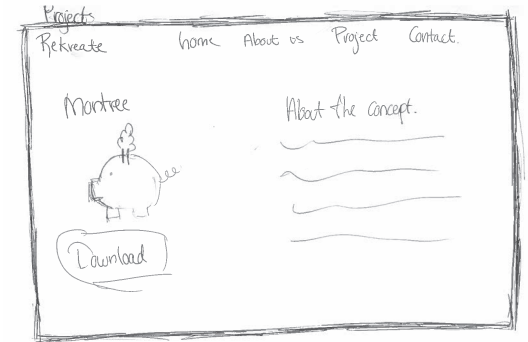 Projects
Rekreate home About us Project Contact.
Montree About the concept.
Download